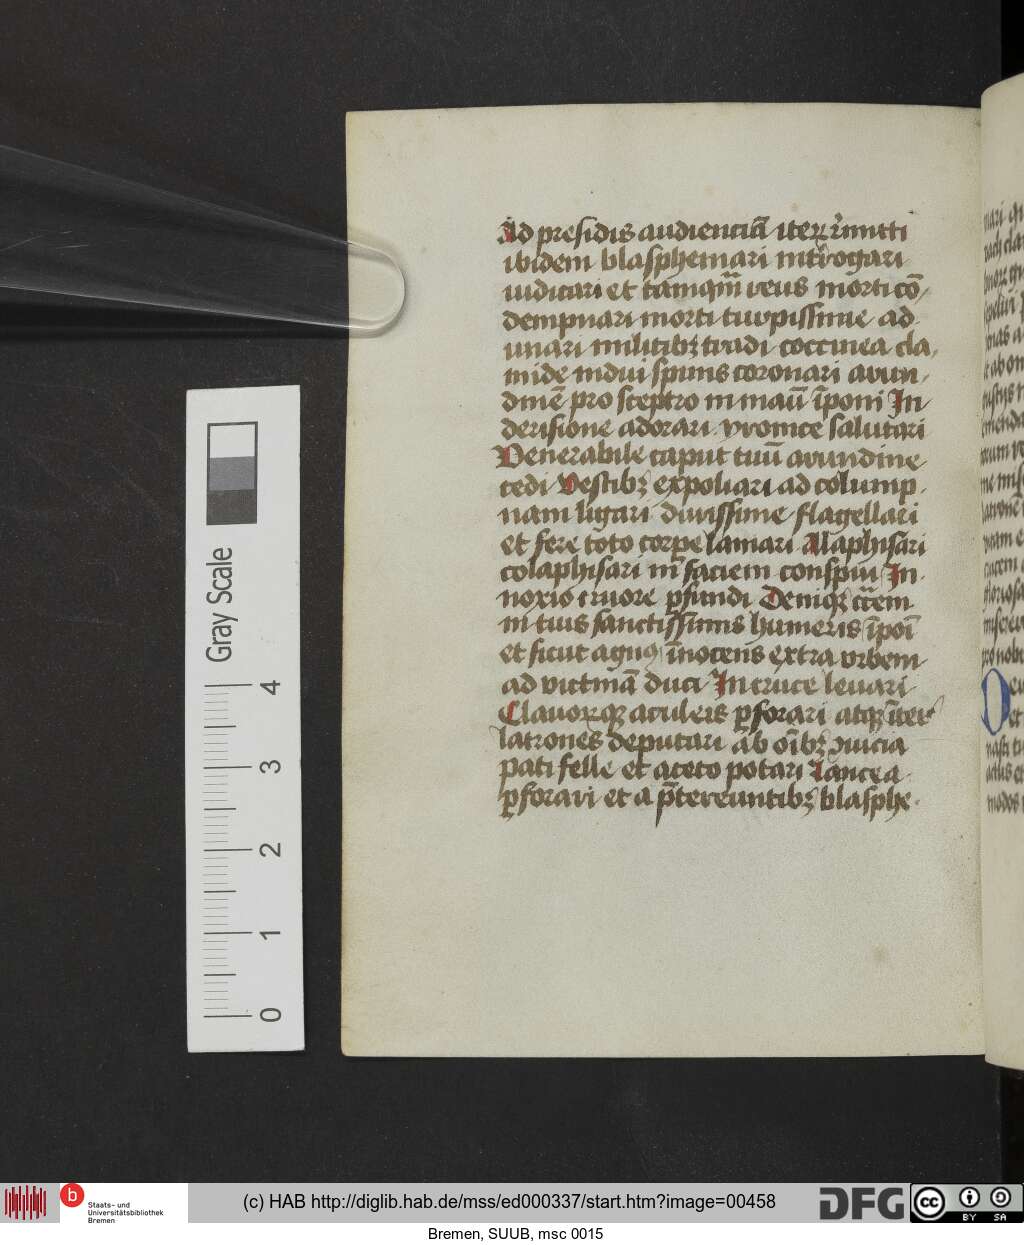 Ad presidis audienciā iteꝝ remitti
ibidem blasphemari intˀrogari
iudicari et tamqm̄ reus morti cō
dempnari morti turpissime ad
iunari militibꝫ tradi coccinea cla
mide indui spinis coronari arun
dinē pro sceptro in manū īponi In
derisione adorari yronice salutari
Venerabile caput tuū arundine
cedi Vestibꝫ expoliari ad colump
nam ligari durissime flagellari
et fere toto corpe laniari Alaphisari
colaphisari in faciem conspui In
noxio cruore ꝑfundi Deniqꝫ crucem
in tuis sanctissimis humeris īponi
et sicut agnꝯ īnocens extra urbem
ad victimā duci In cruce leuari
Clauorꝝqꝫ aculeis ꝑforari atqꝫ īter
latrones deputari ab oībꝫ ꝯuicia
pati felle et aceto potari Lancea
ꝑforari et a p̄tereuntibꝫ blasphe
Gray Scale
4
3
2
1
0
b
Staats- und
Universitätsbibliothek
Bremen
(c) HAB http://diglib.hab.de/mss/ed000337/start.htm?image=00458
DFG
cc
BY SA
Bremen, SUUB, msc 0015